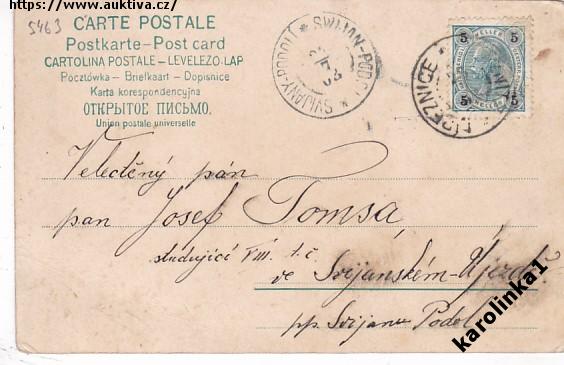 https://www.auktiva.cz/
5463
CARTE POSTALE
Postkarte – Post card
CARTOLINA POSTALE – LEVELEZO-LAP
Pocztówka – Briefkaart – Dopisnice
Karta korespondencyjna
ОТКРЫТОЕ ПИСЬМО.
Union postale universelle
SWIJAN-PODOL
SVIJANY-PODOLÍ
5 HELLER 5
5 HELLER 5
BŘEZNICE
Velectěný pán
pan Josef Tomsa,
studující VIII. t.č
ve Svijanském-Újezdě
pp. Svijany Podol
karolinka1